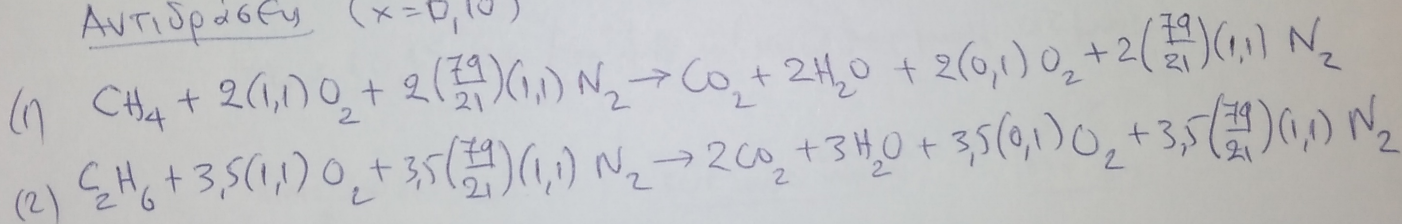 Αντιδράσεις (x=0,10)
(1) CH₄ + 2(1,1)O₂ + 2(79/21)(1,1) N₂ → CO₂ + 2H₂O + 2(0,1) O₂ + 2(79/21)(1,1) N₂
(2) C₂H₆ + 3,5(1,1) O₂ + 3,5(79/21)(1,1) N₂ → 2CO₂ + 3H₂O + 3,5(0,1) O₂ + 3,5(79/21)(1,1) N₂